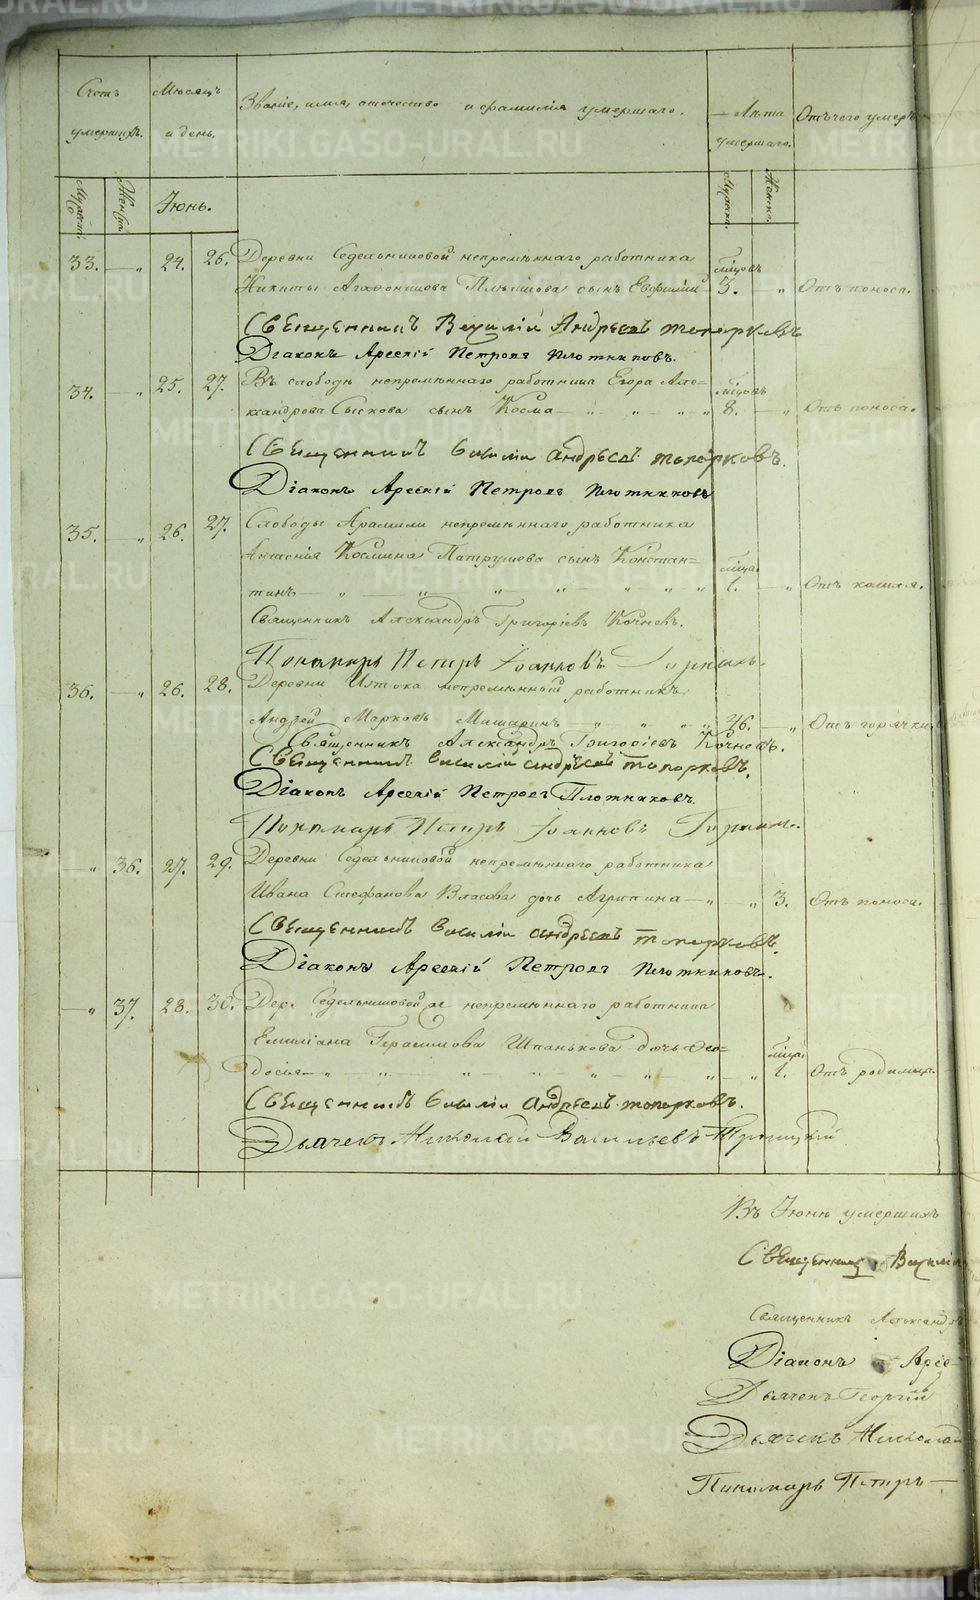 METRIKI.GASO-URAL.RU
Счетъ умершихъ.
Мѣсяцъ и день.
Званіе, имя, отечество и фамилія умершаго.
Лѣта умершаго.
Отъ чего умеръ
Мужеск.
Женск.
Іюнь.
Мужеск.
Женск.
33. — „ 24. 26. Деревни Седельниковой непремѣннаго работника мѣсцовъ
Никиты Агафоникова сынъ Евфимій 3. — „ Отъ поноса.
Священникъ Василій Андреевъ Топорковъ
Діаконъ Арсеній Петровъ Плотниковъ.
34. — „ 25. 27. Въ слободѣ непремѣннаго работника Егора Але- мѣсцовъ
ксандрова Сыскова сынъ Косма — „ „ „ „ 8. — „ Отъ поноса.
Священникъ Василій Андреевъ Топорковъ.
Діаконъ Арсеній Петровъ Плотниковъ
35. — „ 26. 27. Слободы Арамили непремѣннаго работника
Космина Патрушева сынъ Констан- мѣсца.
тинъ — „ „ „ „ „ „ „ 1. — „ Отъ кашля.
Священникъ Александръ Григоріевъ Кочневъ.
Пономарь Петръ Іоанновъ
36. — „ 26. 28. Деревни Истока непремѣнный работникъ
Андрей Марковъ Мишаринъ — „ „ „ „ 46. — „ Отъ горячки.
Священникъ Александръ Григоріевъ Кочневъ.
Священникъ Василій Андреевъ Топорковъ.
Діаконъ Арсеній Петровъ Плотниковъ.
Пономарь Петръ Іоанновъ
„ 36. 27. 29. Деревни Седельниковой непремѣннаго работника
Ивана Стефанова Власова дочь Агрипина — „ — „ 3. Отъ поноса.
Священникъ Василій Андреевъ Топорковъ.
Діаконъ Арсеній Петровъ Плотниковъ.
— „ 37. 28. 30. Дер. Седельниковой же непремѣннаго работника
Емилiана Герасимова Шпанькова дочь Ѳео- мѣсца.
досья — „ „ „ „ „ „ „ — „ 1. Отъ родимца.
Священникъ Василій Андреевъ Топорковъ.
Дьячекъ Николай Васильевъ Троицкій
Въ Іюнѣ умершихъ
Священникъ Василій
Священникъ Александръ
Діаконъ Арсе-
Дьячекъ Георгій
Дьячекъ Николай
Пономарь Петръ —